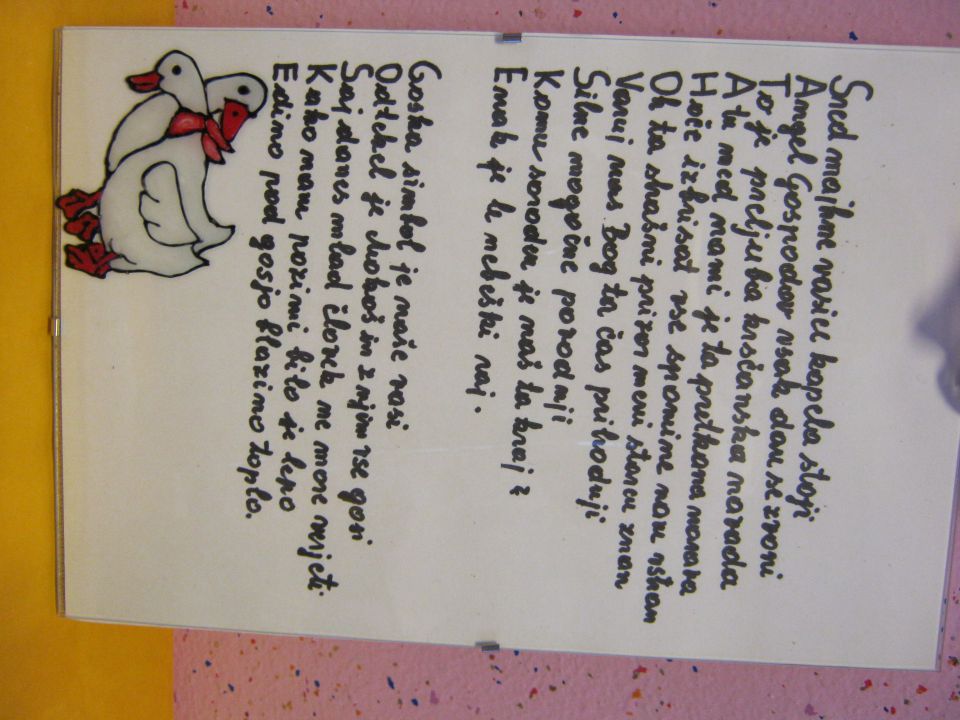 Sred majhne vasice kapela stoji
Angel Gospodov vsak dan se zvoni
To je preljuba krščanska navada
A tu med nami je ta pretkana narava
Hoče izbrisat vse spomine nam vštran
Oh ta strašni prizor meni starcu znan
Varuj nas Bog ta čas prihodnji
Silne mogočne povodnji
Komu soroden je naš ta kraj ?
Enak je le nebeški raj.
Goska simbol je naše vasi
Odtekel je Mokoš in z njim vse gosi
Saj danes mlad človek ne more verjeti
Kako nam pozimi bilo je lepo
Edino pod gosjo blazino toplo.